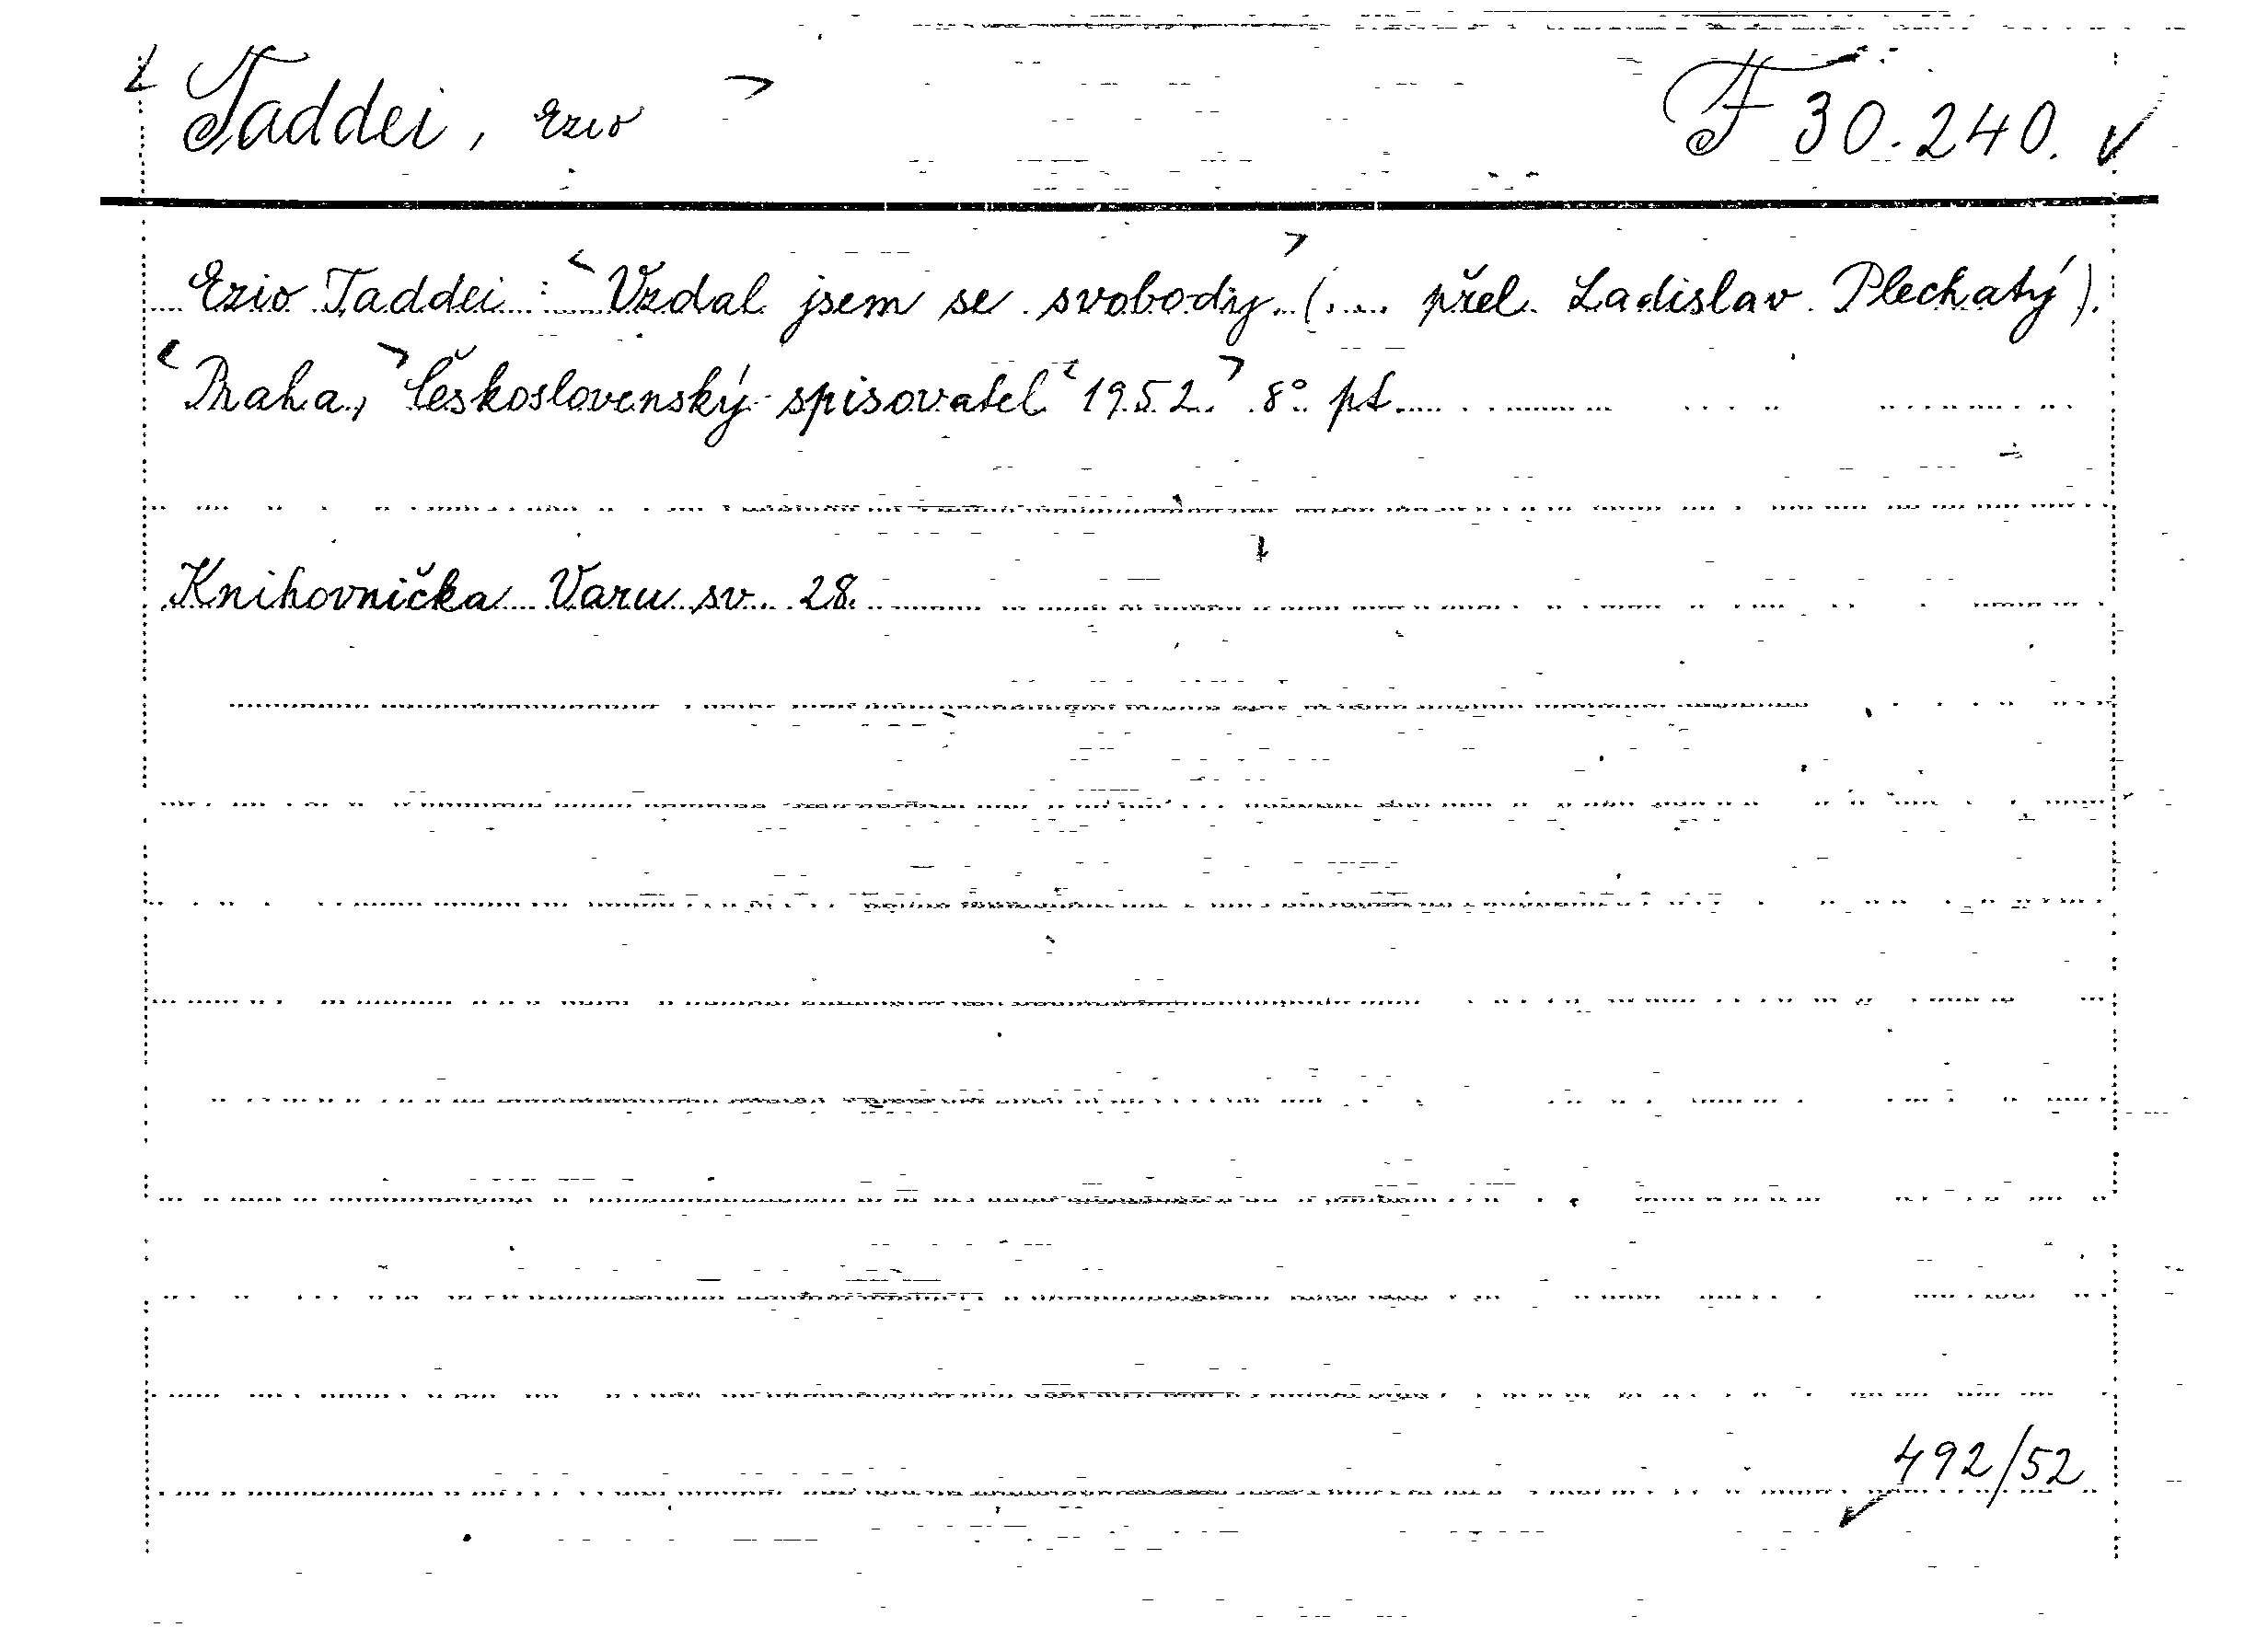 Taddei, Ezio F 30.240.
Ezio Taddei: Vzdal jsem se svobody. (... přel. Ladislav Plechatý).
Praha, Československý spisovatel 1952. 8° pt.
Knihovnička Varu sv. 28.
492/52